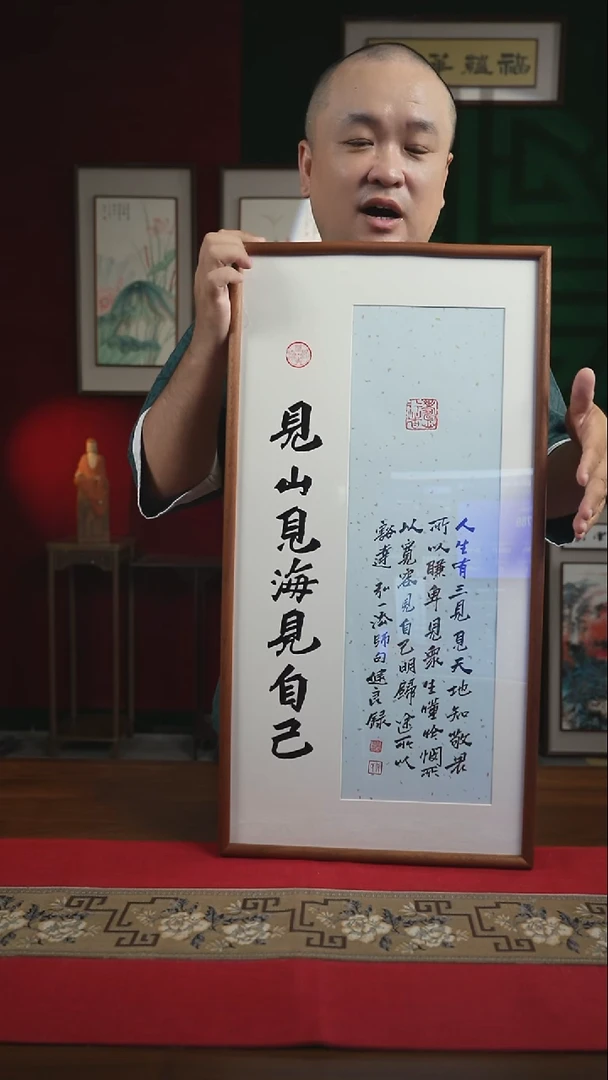 福蘊華
見山見海見自己
人生有三見見天地知敬畏
所以謙卑見衆生懂怜憫所
以寬容見自己明歸途所以
豁達 弘一法師句健良録